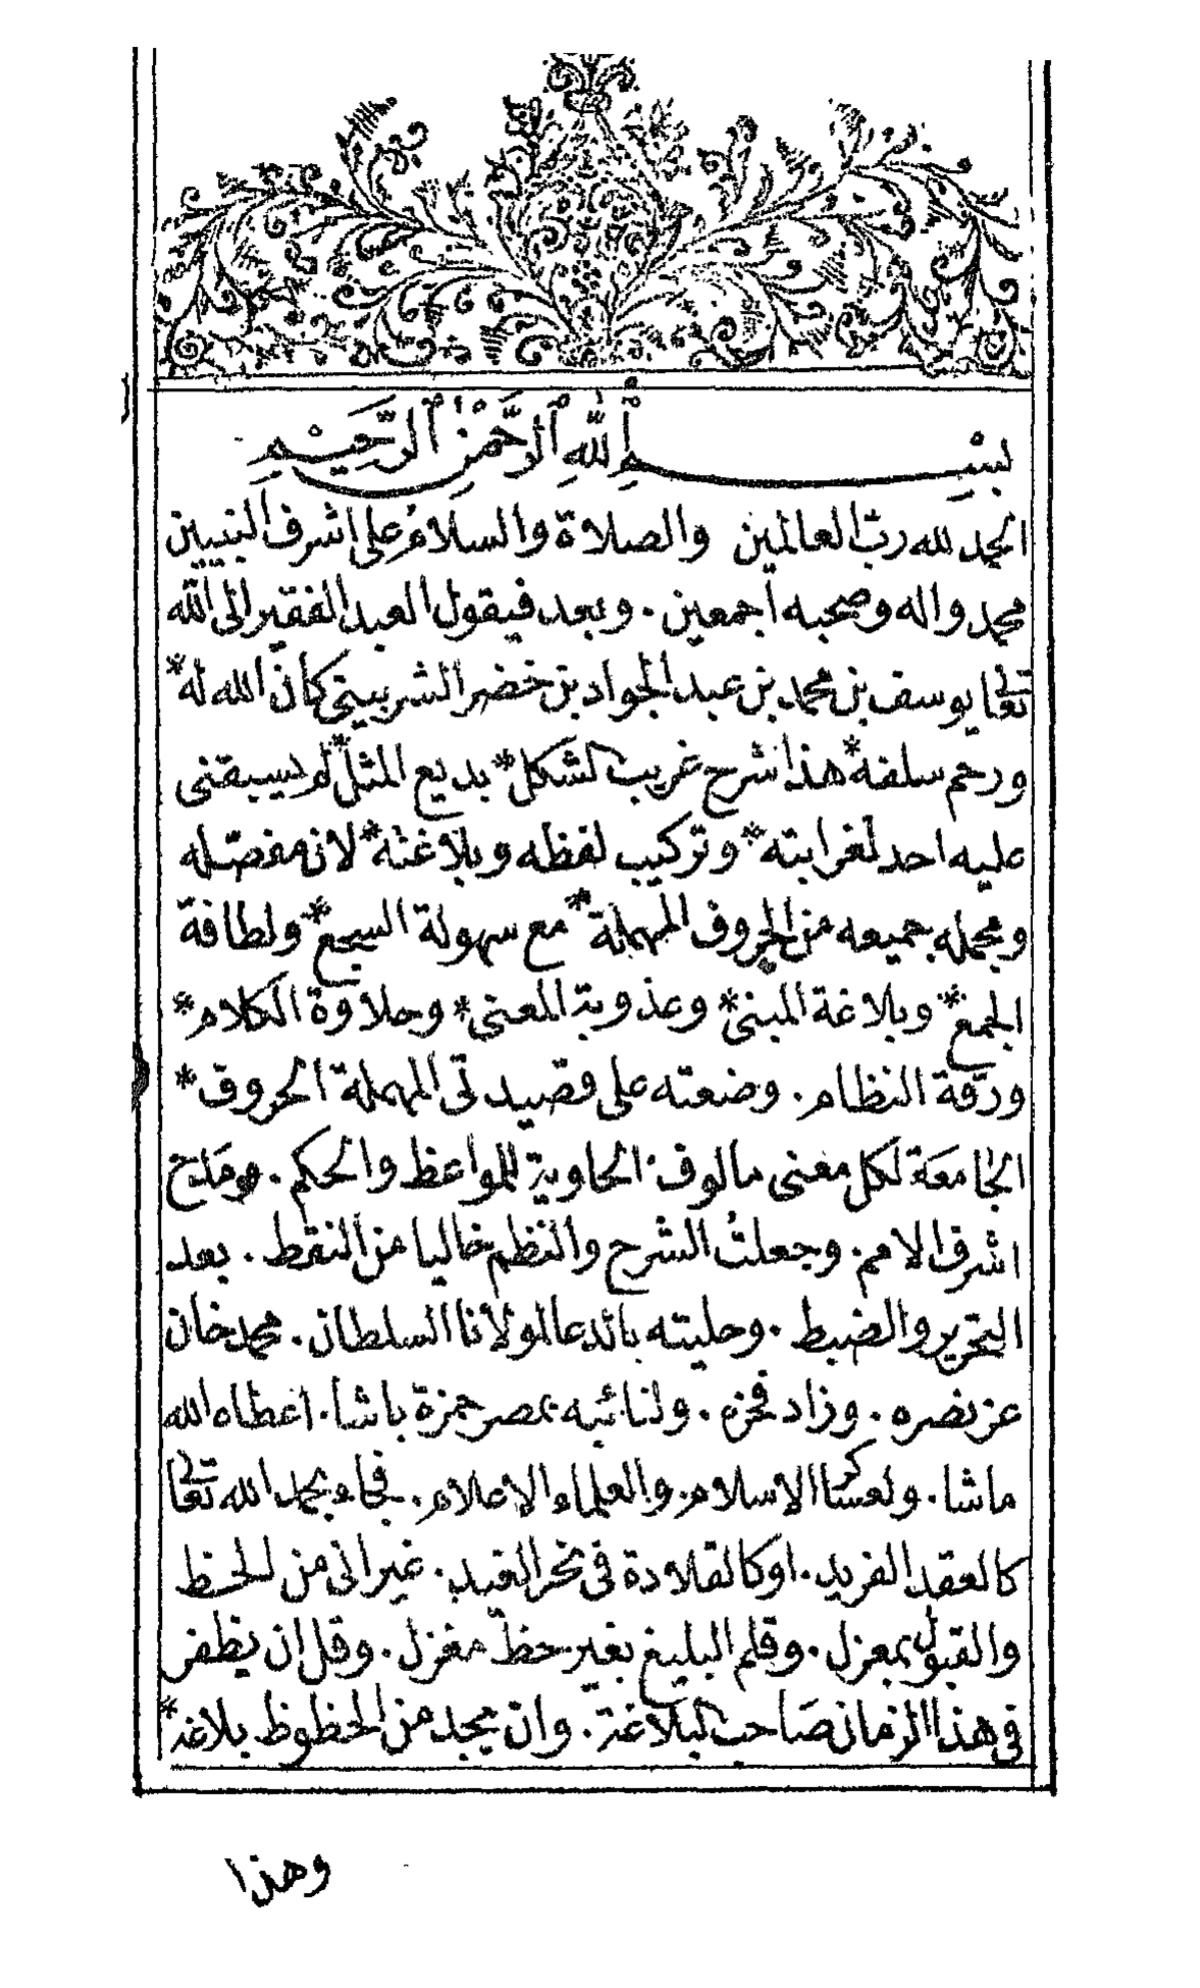 بِسْمِ اللّٰهِ الرَّحْمٰنِ الرَّحِيْمِ
الحمد لله ربّ العالمين والصلاة والسلامُ على اشرف النبيين
محمد واله وصحبه اجمعين . وبعد فيقول العبد الفقير الى الله
تعالى يوسف بن محمد بن عبد الجواد بن خضر الشربيني كان الله له *
ورحم سلفه * هذا شرح غريب الشكل * بديع المثل * لم يسبقنى
عليه احد لغرابته * وتركيب لفظه وبلاغته * لان مفصّله
ومجمله جميعه من الحروف المهملة * مع سهولة السجع * ولطافة
الجمع * وبلاغة المبنى * وعذوبة المعنى * وحلاوة الكلام *
ورقة النظام . وضعته على قصيدتى المهملة الحروف *
الجامعة لكل معنى مالوف . الحاوية للمواعظ والحكم . ومَدح
اشرف الامم . وجعلتُ الشرح والنظم خاليا من النقط . بعد
التحرير والضبط . وحليته بالدعا لمولانا السلطان . محمد خان
عز نصره . وزاد فخره . ولنائبه بمصر حمزة باشا . اعطاه الله
ماشا . ولعساكر الاسلام . والعلماء الاعلام . فجاء بحمد الله تعالى
كالعقد الفريد . او كالقلادة فى نحر الغيد . غير انى من الحظ
والقبول بمعزل . وقلم البليغ بغير حظّ مغزل . وقل ان يظفر
فى هذا الزمان صَاحب البلاغة . وان يجد من الحظوظ بلاغه *
وهذا